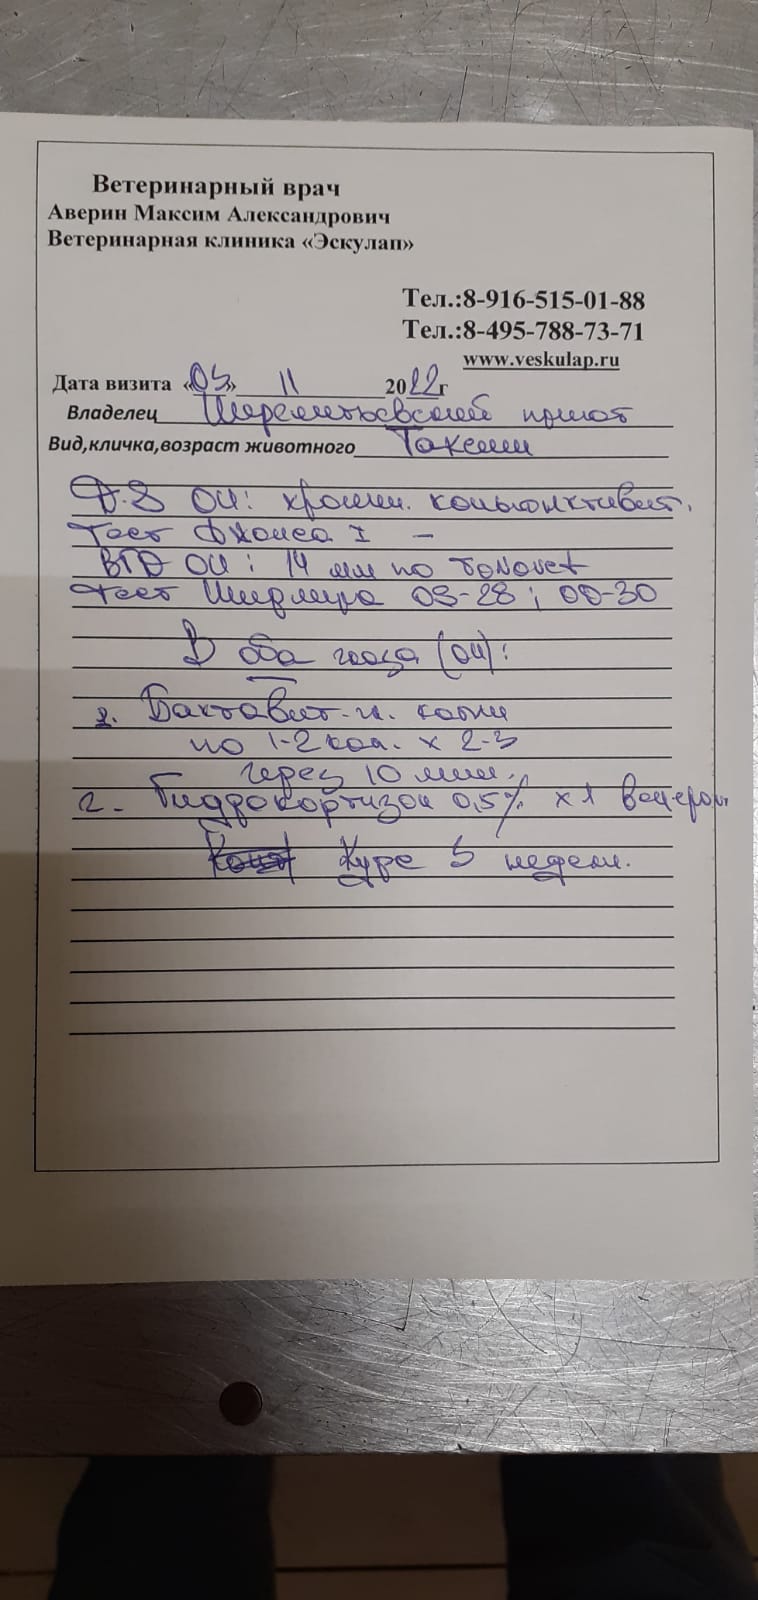 Ветеринарный врач
Аверин Максим Александрович
Ветеринарная клиника «Эскулап»
Тел.:8-916-515-01-88
Тел.:8-495-788-73-71
www.veskulap.ru
Дата визита «03» 11 2022г
Владелец Шереметьевский приют
Вид,кличка,возраст животного
D.S OU: хронич. коньюнктивит.
Тест Джонса I -
ВГД OU: 14 мм по Tonovet
Тест Ширмера OS-28; OD-30
В оба глаза (OU):
капли
по 1-2 кап. х 2-3
через 10 мин.
2. Гидрокортизон 0,5% х1 вечером
Курс 3 недели.